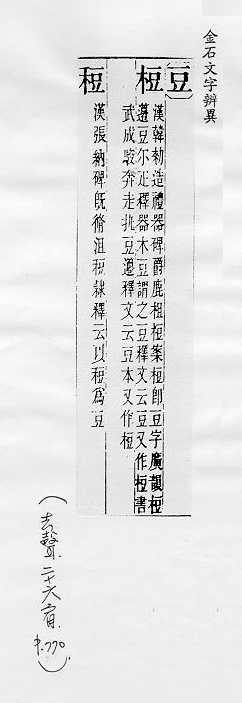 金石文字辨異
豆
梪 漢韓勑造禮器碑爵鹿柤梪案梪即豆字廣韻梪
籩豆尔疋釋器木豆謂之豆釋文云豆又作梪書
武成駿奔走執豆籩釋文云豆本又作梪
䄈 漢張納碑旣脩沮䄈隸釋云以䄈為豆
(去聲.二十六宥.P.770)